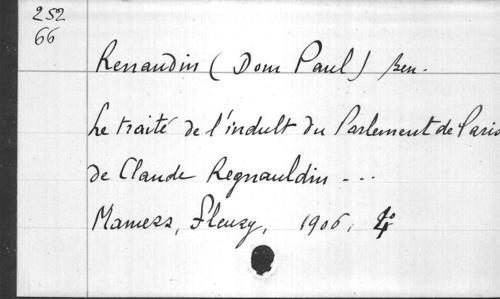 252
66
Renaudin (Dom Paul) Ben.
Le traité de l'indult du Parlement de Paris
de Claude Regnauldin ...
Mamers, Fleury, 1906, 4°